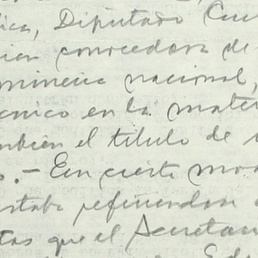 ica, Diputado Cu
bien conocedora de
minería nacional,
cnico en la mate
mbién el título de
o.- En cierto mod
estaba refiriendose a
tas que el Secretar